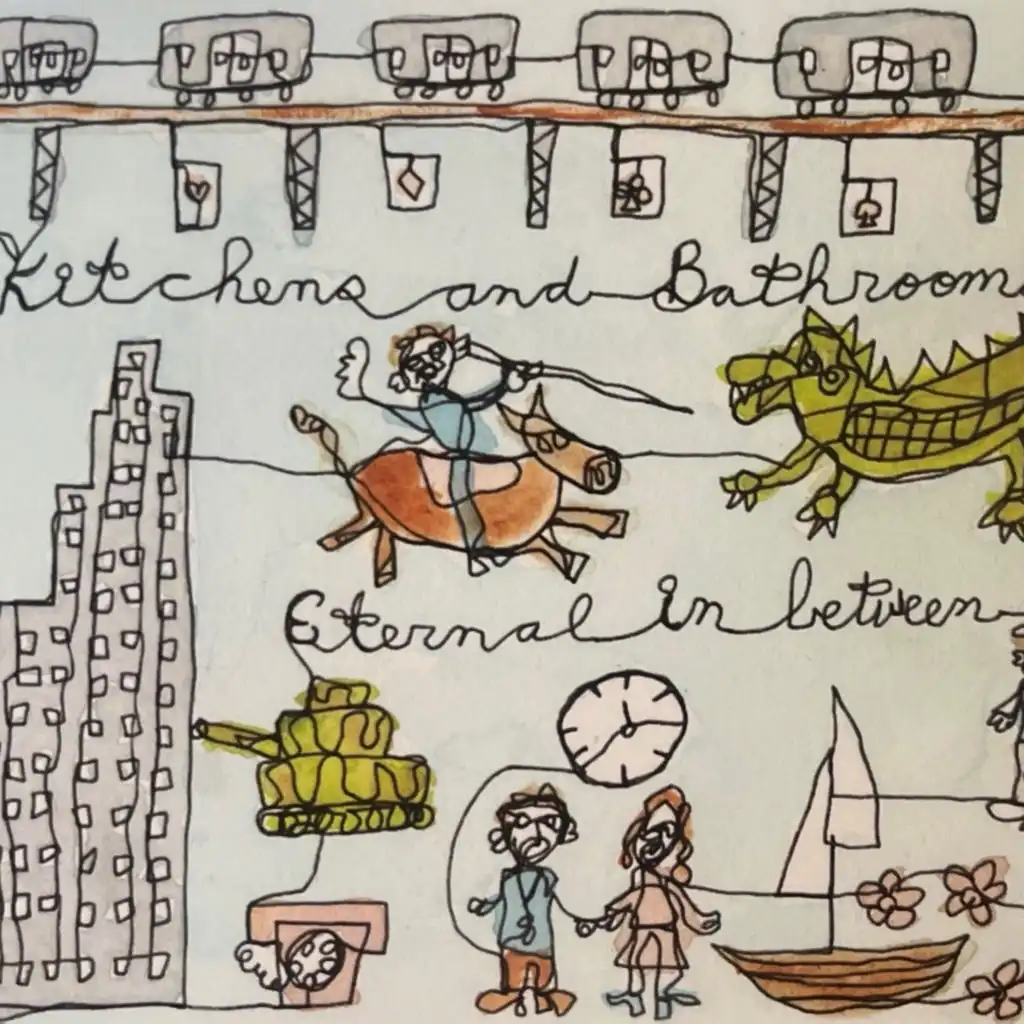 Kitchens and Bathrooms
Eternal In between